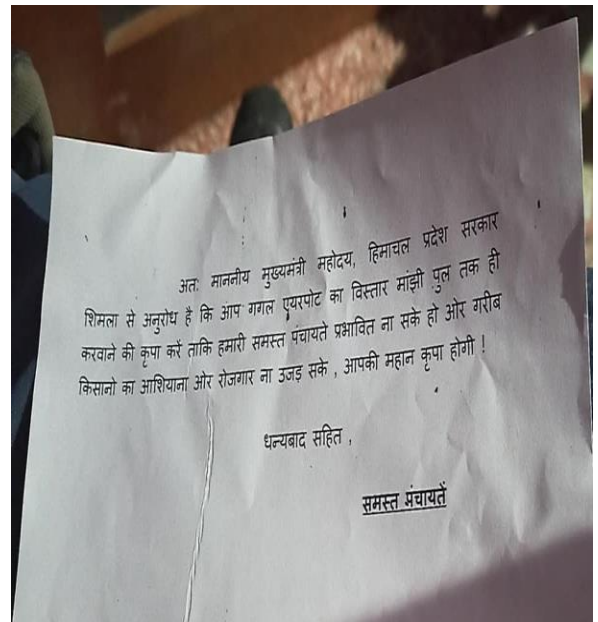 अतः माननीय मुख्यमंत्री महोदय, हिमाचल प्रदेश सरकार
शिमला से अनुरोध है कि आप गगल एयरपोट का विस्तार मांझी पुल तक ही
करवाने की कृपा करें ताकि हमारी समस्त पंचायते प्रभावित ना सके हो ओर गरीब
किसानो का आशियाना ओर रोजगार ना उजड़ सके , आपकी महान कृपा होगी !
धन्यबाद सहित ,
समस्त मंचायतें